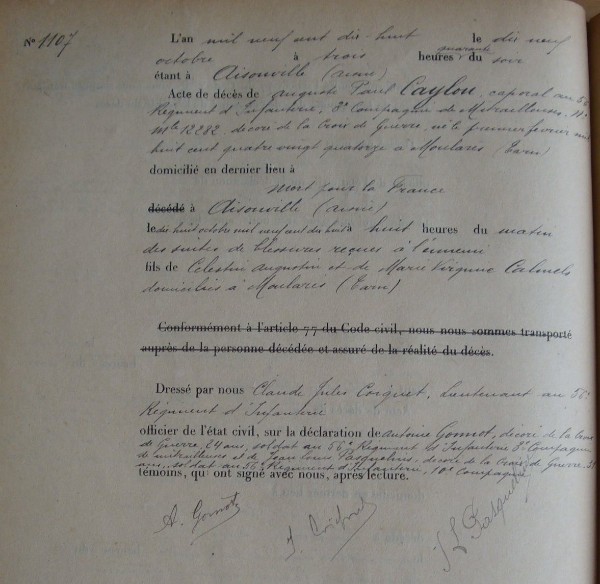 N° 1107
L'an mil neuf cent dix-huit le dix neuf
octobre à trois heures quarante du soir
étant à Aisonville (Aisne)
Acte de décès de Auguste Paul Caylou, caporal au 56
Régiment d'Infanterie, 3e Compagnie de Mitrailleuses, N°
Mle 12282, décoré de la Croix de Guerre, né le premier février mil
huit cent quatre vingt quatorze à Moularès (Tarn)
domicilié en dernier lieu à
mort pour la France
décédé à Aisonville (Aisne)
le dix huit octobre mil neuf cent dix huit à huit heures du matin
des suites de blessures reçues à l'ennemi
fils de Célestin Augustin et de Marie Virginie Calmels
domiciliés à Moularès (Tarn)
Conformément à l'article 77 du Code civil, nous nous sommes transporté
auprès de la personne décédée et assuré de la réalité du décès.
Dressé par nous Claude Jules Coignet, Lieutenant au 56e
Régiment d'Infanterie
officier de l'état civil, sur la déclaration de Antoine Gonnot, décoré de la Croix
de Guerre, 24 ans, soldat au 56e Régiment d'Infanterie 3e Compagnie
de mitrailleuses et de Jean Louis Pasquelin, décoré de la Croix de Guerre,
ans, soldat au 56e Régiment d'Infanterie, 10e Compagnie
témoins, qui ont signé avec nous, après lecture.
A. Gonnot J. Coignet J L Pasquelin